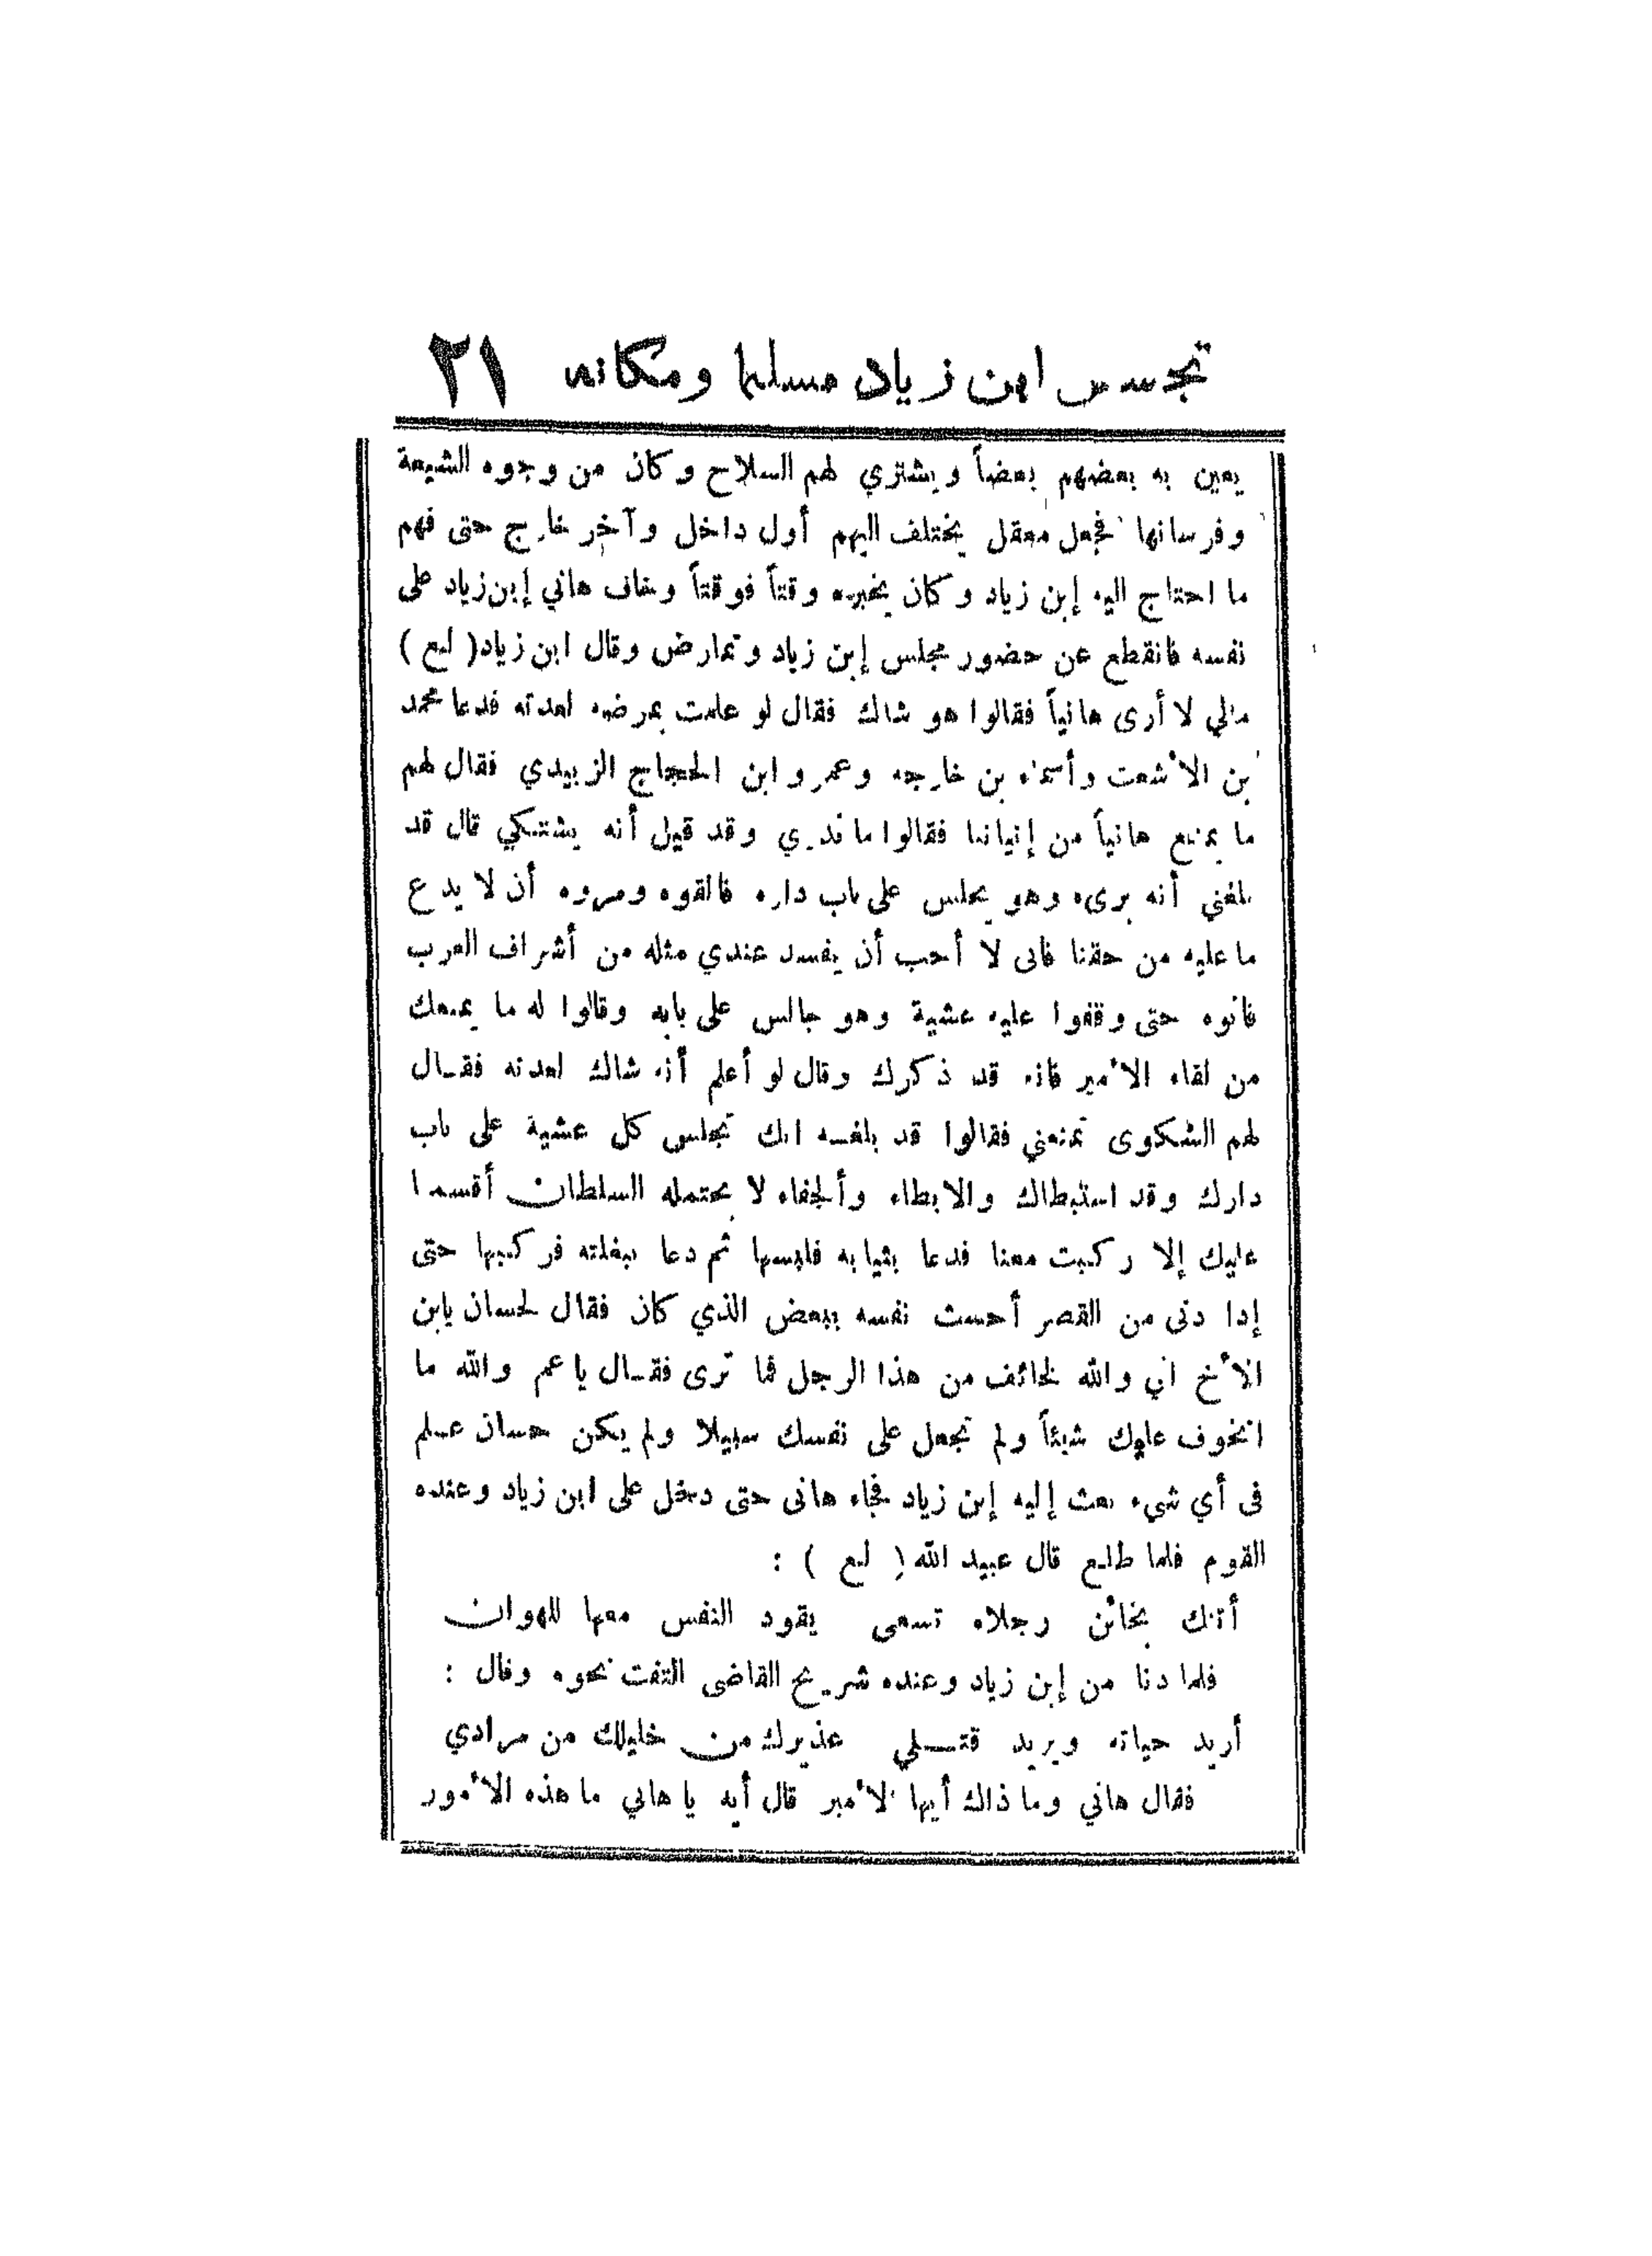 تجسس ابن زياد مسلما ومكانه ٢١
يعين به بعضهم بعضاً ويشتري لهم السلاح وكان من وجوه الشيعة
وفرسانها فجعل معقل يختلف اليهم أول داخل وآخر خارج حتى فهم
ما احتاج اليه إبن زياد وكان يخبره وقتاً فوقتاً وخاف هاني إبن زياد على
نفسه فانقطع عن حضور مجلس إبن زياد وتمارض وقال ابن زياد ( لع )
مالي لا أرى هانياً فقالوا هو شاك فقال لو علمت بمرضه لعدته فدعا محمد
بن الأشعت وأسماء بن خارجه وعمر وابن الحجاج الزبيدي فقال لهم
ما يمنع هانياً من إتياننا فقالوا ما ندري وقد قيل أنه يشتكي قال قد
بلغني أنه برىء وهو يجلس على باب داره فالقوه ومروه أن لا يدع
ما عليه من حقنا فانى لا أحب أن يفسد عندي مثله من أشراف العرب
فاتوه حتى وقفوا عليه عشية وهو جالس على بابه وقالوا له ما يمنعك
من لقاء الأمير فانه قد ذكرك وقال لو أعلم أنه شاك لعدته فقال
لهم الشكوى تمنعني فقالوا قد بلغه انك تجلس كل عشية على باب
دارك وقد استبطاك والابطاء وألجفاء لا يحتمله السلطان أقسمنا
عليك إلا ركبت معنا فدعا بثيابه فلبسها ثم دعا ببغلته فركبها حتى
إدا دنى من القصر أحست نفسه ببعض الذي كان فقال لحسان يابن
الأخ اني والله لخائف من هذا الرجل فما ترى فقال يا عم والله ما
اتخوف عليك شيئاً ولم تجعل على نفسك سبيلا ولم يكن حسان علم
فى أي شيء بعث إليه إبن زياد فجاء هانى حتى دخل على ابن زياد وعنده
القوم فلما طلع قال عبيد الله ( لع ) :
أتتك بخائن رجلاه تسعى يقود النفس معها للهوان
فلما دنا من إبن زياد وعنده شريح القاضى التفت نحوه وقال :
أريد حياته ويريد قتلي عذيرك من خليلك من مرادي
فقال هاني وما ذاك أيها الأمير قال أيه يا هاني ما هذه الأمور